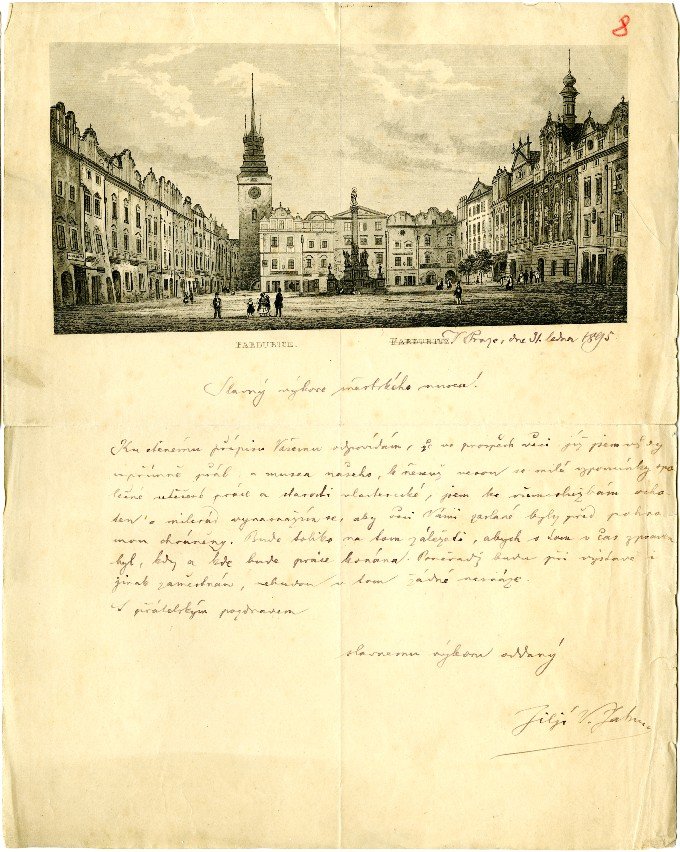 8
PARDUBICE.
PARDUBICE V Praze, dne 31. ledna 1895
Slavný výbore městského musea!
Ku ctěnému přípisu Vašemu odpovídám, že ve prospěch věci již jsem vždy
upřímně přál, a musea našeho, k němuž nesou se milé vzpomínky spo
lečné práce a starosti vlastenecké, jsem ke všem službám ocho
ten a milerád vynasnažím se, aby věci Vámi zaslané byly před pohro
mou chráněny. Bude toliko na tom záležeti, abych o tom v čas zpraven
byl, kdy a kde bude práce konána. Poněvadž budu při výstavě i
jinak zaměstnán, nebudou v tom žádné nesnáze.
S přátelským pozdravem
slavnému výboru oddaný
Jiljí V. Jahn